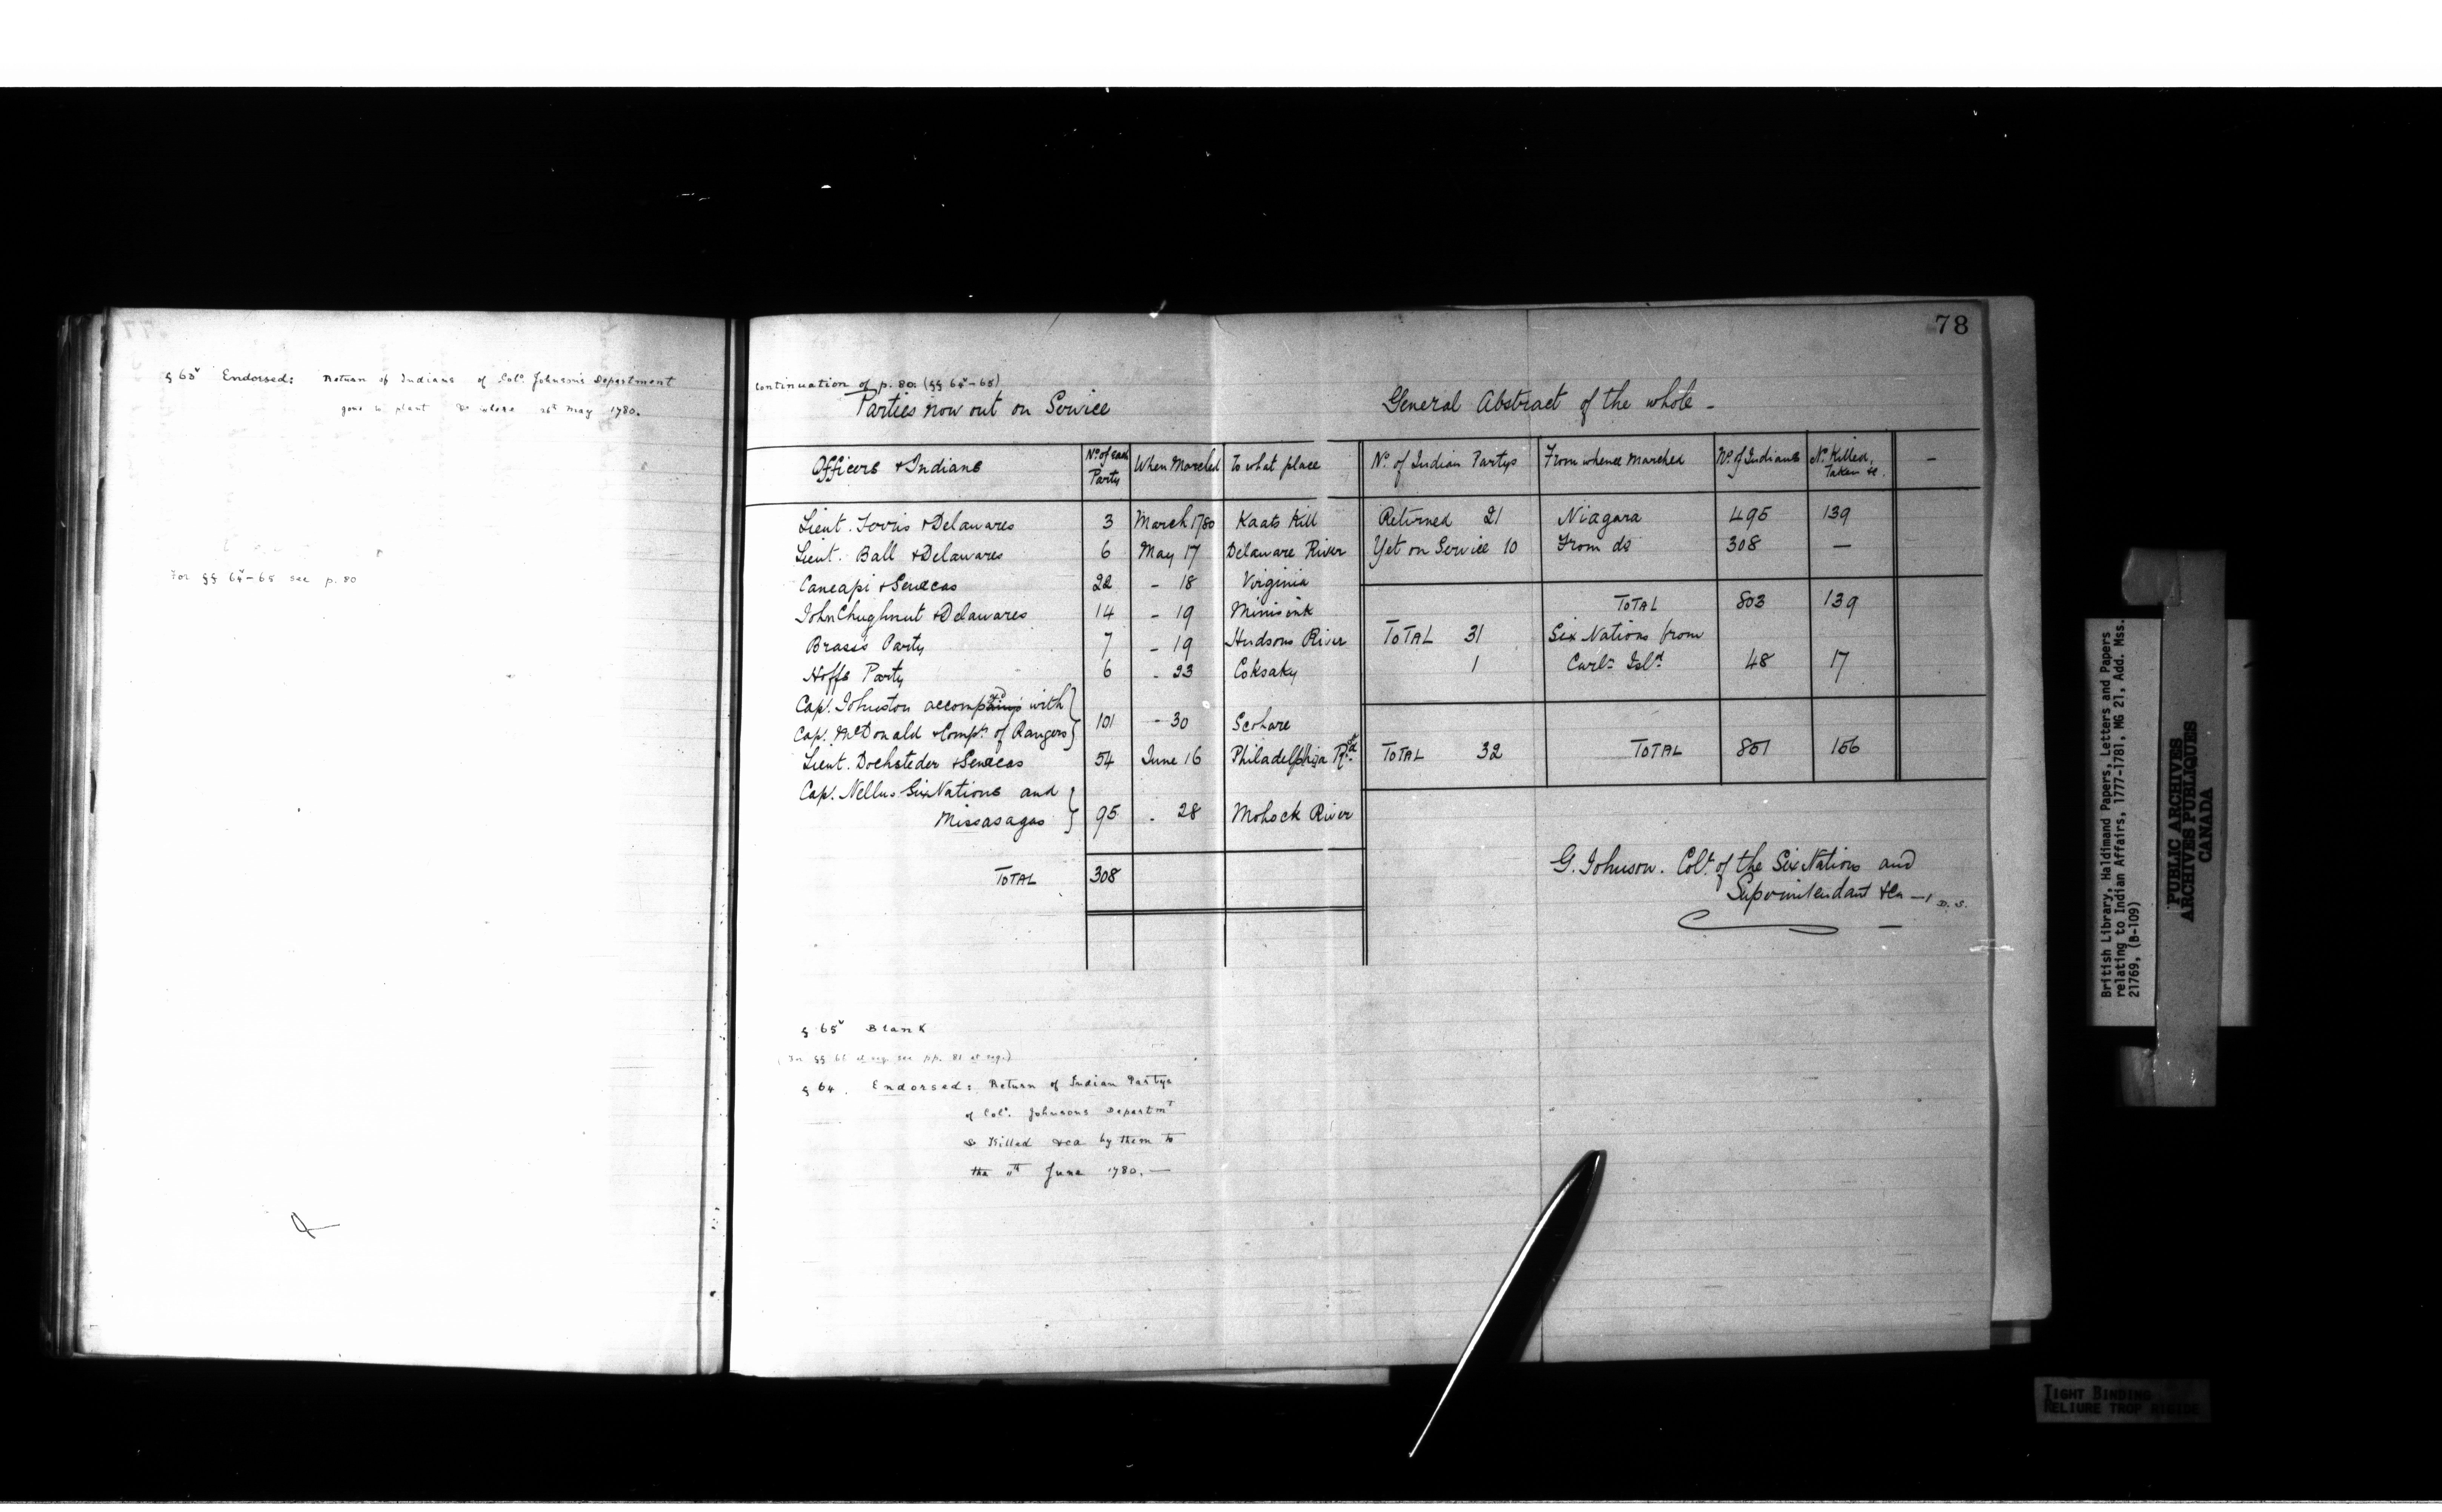 § 63v Endorsed: Return of Indians of Colo. Johnson's Department
gone to plant & where 26th May 1780.
For §§ 64v-65 see p. 80
78
Continuation of p. 80. (§§ 64v-65)
Parties now out on Service
Officers & Indians | No. of each Party | When Marched | To what place
Lieut. & Delawares | 3 | March 1780 | Kaats Kill
Lieut. Ball & Delawares | 6 | May 17 | Delaware River
Caneapi & Senecas | 22 | - 18 | Virginia
John Chughnut & Delawares | 14 | - 19 | Minisink
Brass's Party | 7 | - 19 | Hudsons River
Hoffs Party | 6 | - 23 | Coksaky
Cap. Johnston accomp with }
Cap. McDonald & Compy. of Rangers } | 101 | - 30 | Scohare
Lieut. Dochsteder & Senecas | 54 | June 16 | Philadelphia Rd.
Cap. Nellus Six Nations and }
Missasagas } | 95 | . 28 | Mohock River
TOTAL | 308
General Abstract of the whole -
No. of Indian Partys | From whence Marched | No. of Indians | No. Killed, Taken &c. | -
Returned 21 | Niagara | 495 | 139
Yet on Service 10 | From do | 308 | —
TOTAL | 803 | 139
TOTAL 31 | Six Nations from
1 | Carln. Isld. | 48 | 17
TOTAL 32 | TOTAL | 851 | 156
G. Johnson. Colo. of the Six Nations and
Superintendant &Ca — D. S.
§ 65v Blank
(For §§ 66 et seq. see pp. 81 et seq.)
§ 64. Endorsed: Return of Indian Partys
of Colo. Johnsons Departmt
& Killed &ca by them to
the 11th June 1780. —
British Library, Haldimand Papers, Letters and Papers
relating to Indian Affairs, 1777-1781, MG 21, Add. Mss.
21769, (B-109)
PUBLIC ARCHIVES
ARCHIVES PUBLIQUES
CANADA
TIGHT BINDING
RELIURE TROP RIGIDE